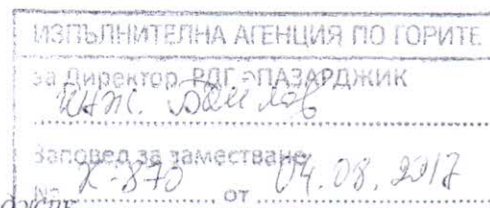 ИЗПЪЛНИТЕЛНА АГЕНЦИЯ ПО ГОРИТЕ
За Директор РДГ - ПАЗАРДЖИК
инж.
Заповед за заместване
№ К-870 от 04.08.2017